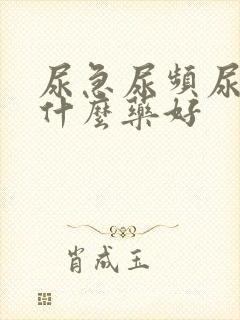 尿急尿頻尿
什麼藥好
肖成玉